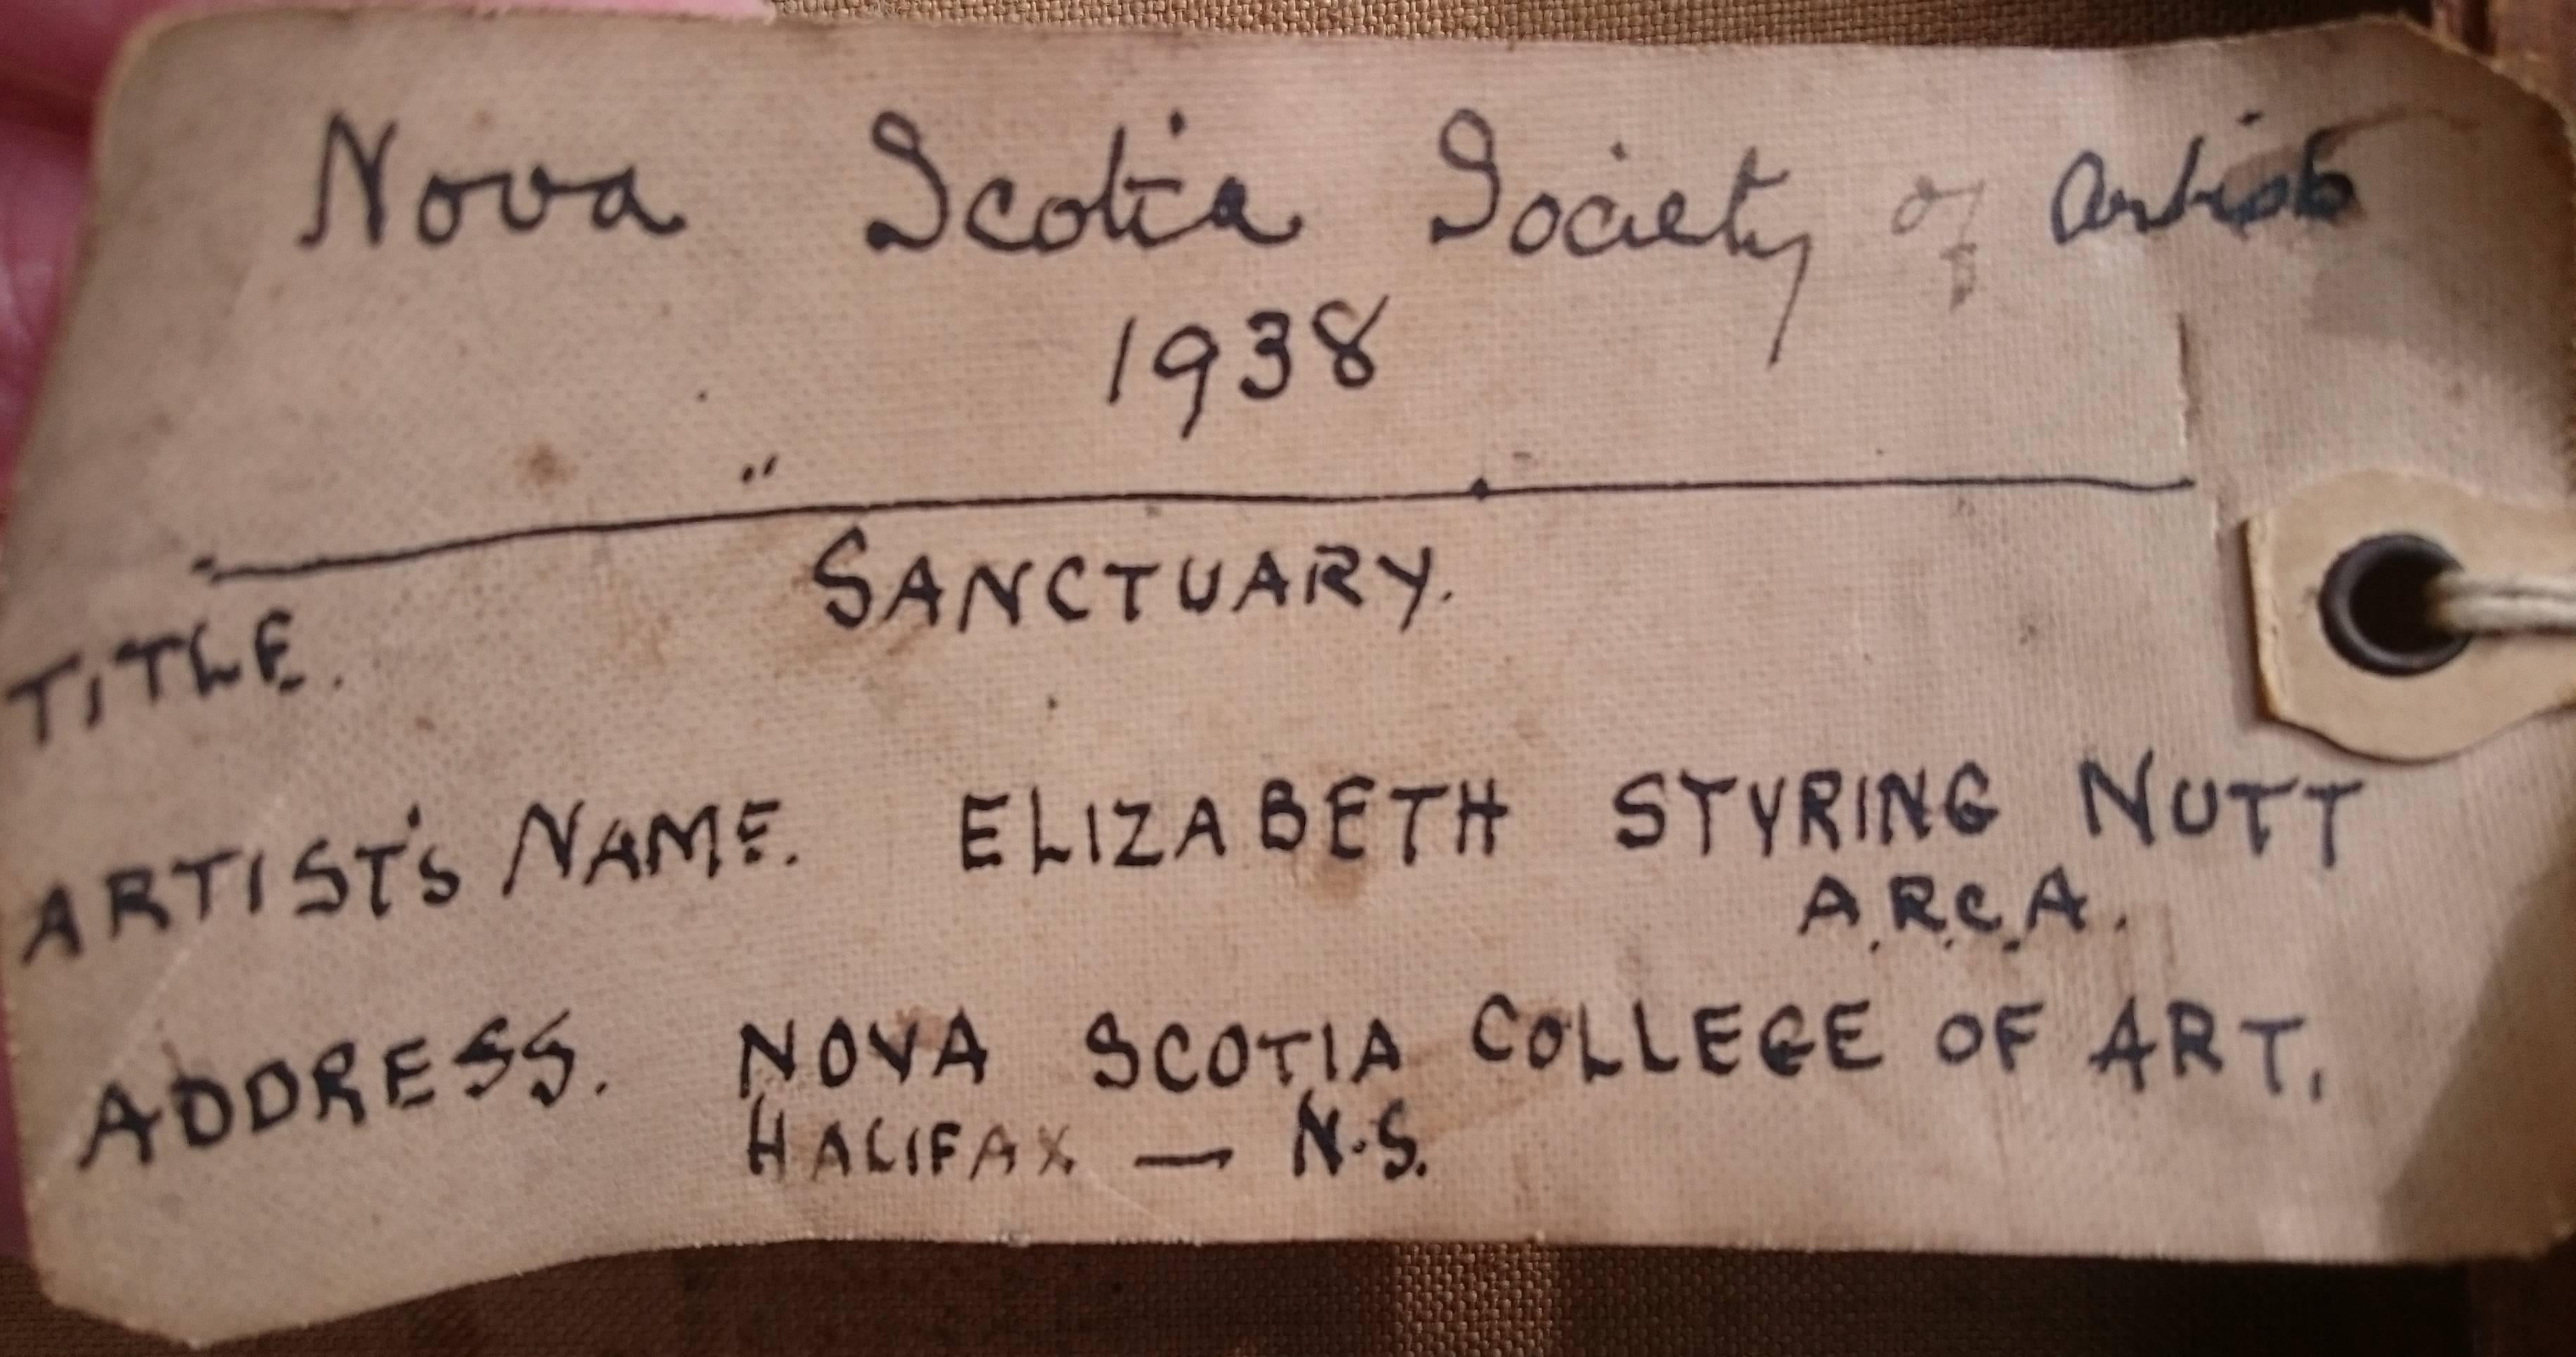 Nova Scotia Society of Artists
1938
TITLE. SANCTUARY.
ARTIST'S NAME. ELIZABETH STYRING NUTT
A.R.C.A.
ADDRESS. NOVA SCOTIA COLLEGE OF ART.
HALIFAX — N.S.